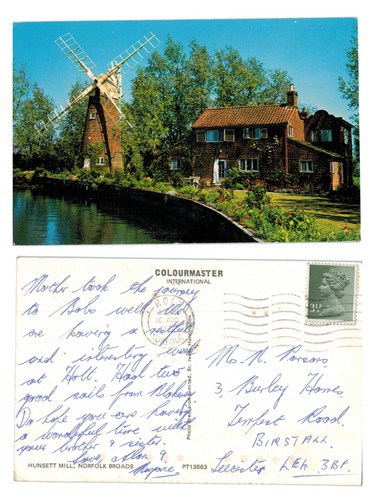 Mother took the journey
to Bobs well. We
are having a restful
and interesting week
at Holt. Had two
good sails from Blakeney
Do hope you are having
a wonderful time with
your brother & sister.
Love Allan &
HUNSETT MILL, NORFOLK BROADS
COLOURMASTER
INTERNATIONAL
PT13663
3½P
Mrs. N. Parsons
3, Burley Homes,
Tempest Road,
BIRSTALL.
Leicester LE4 3BP.